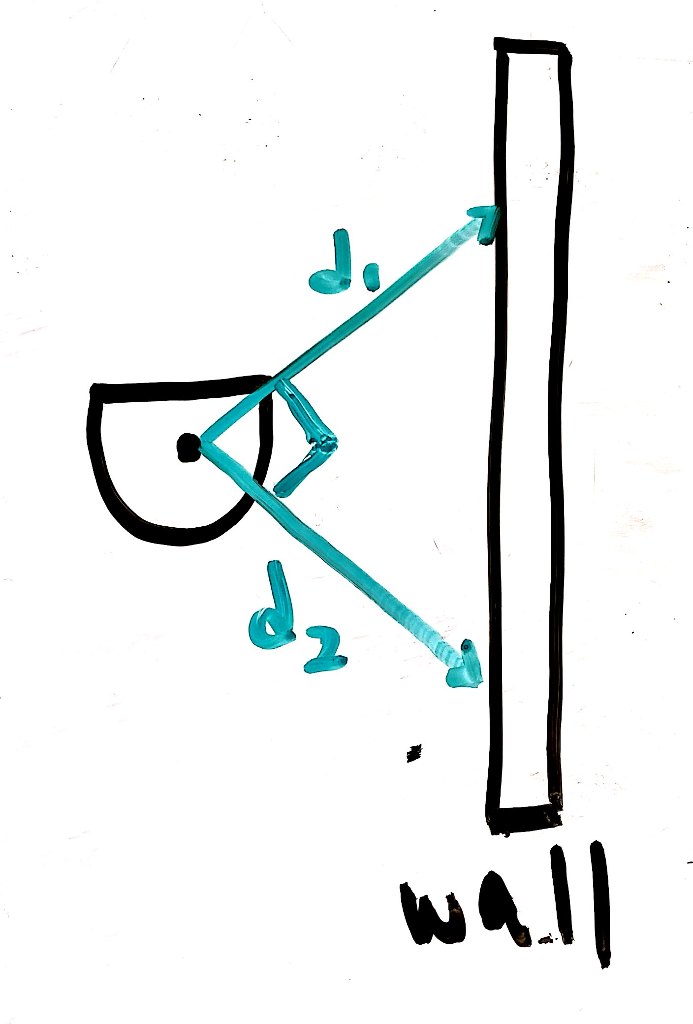 d₁
d₂
wall